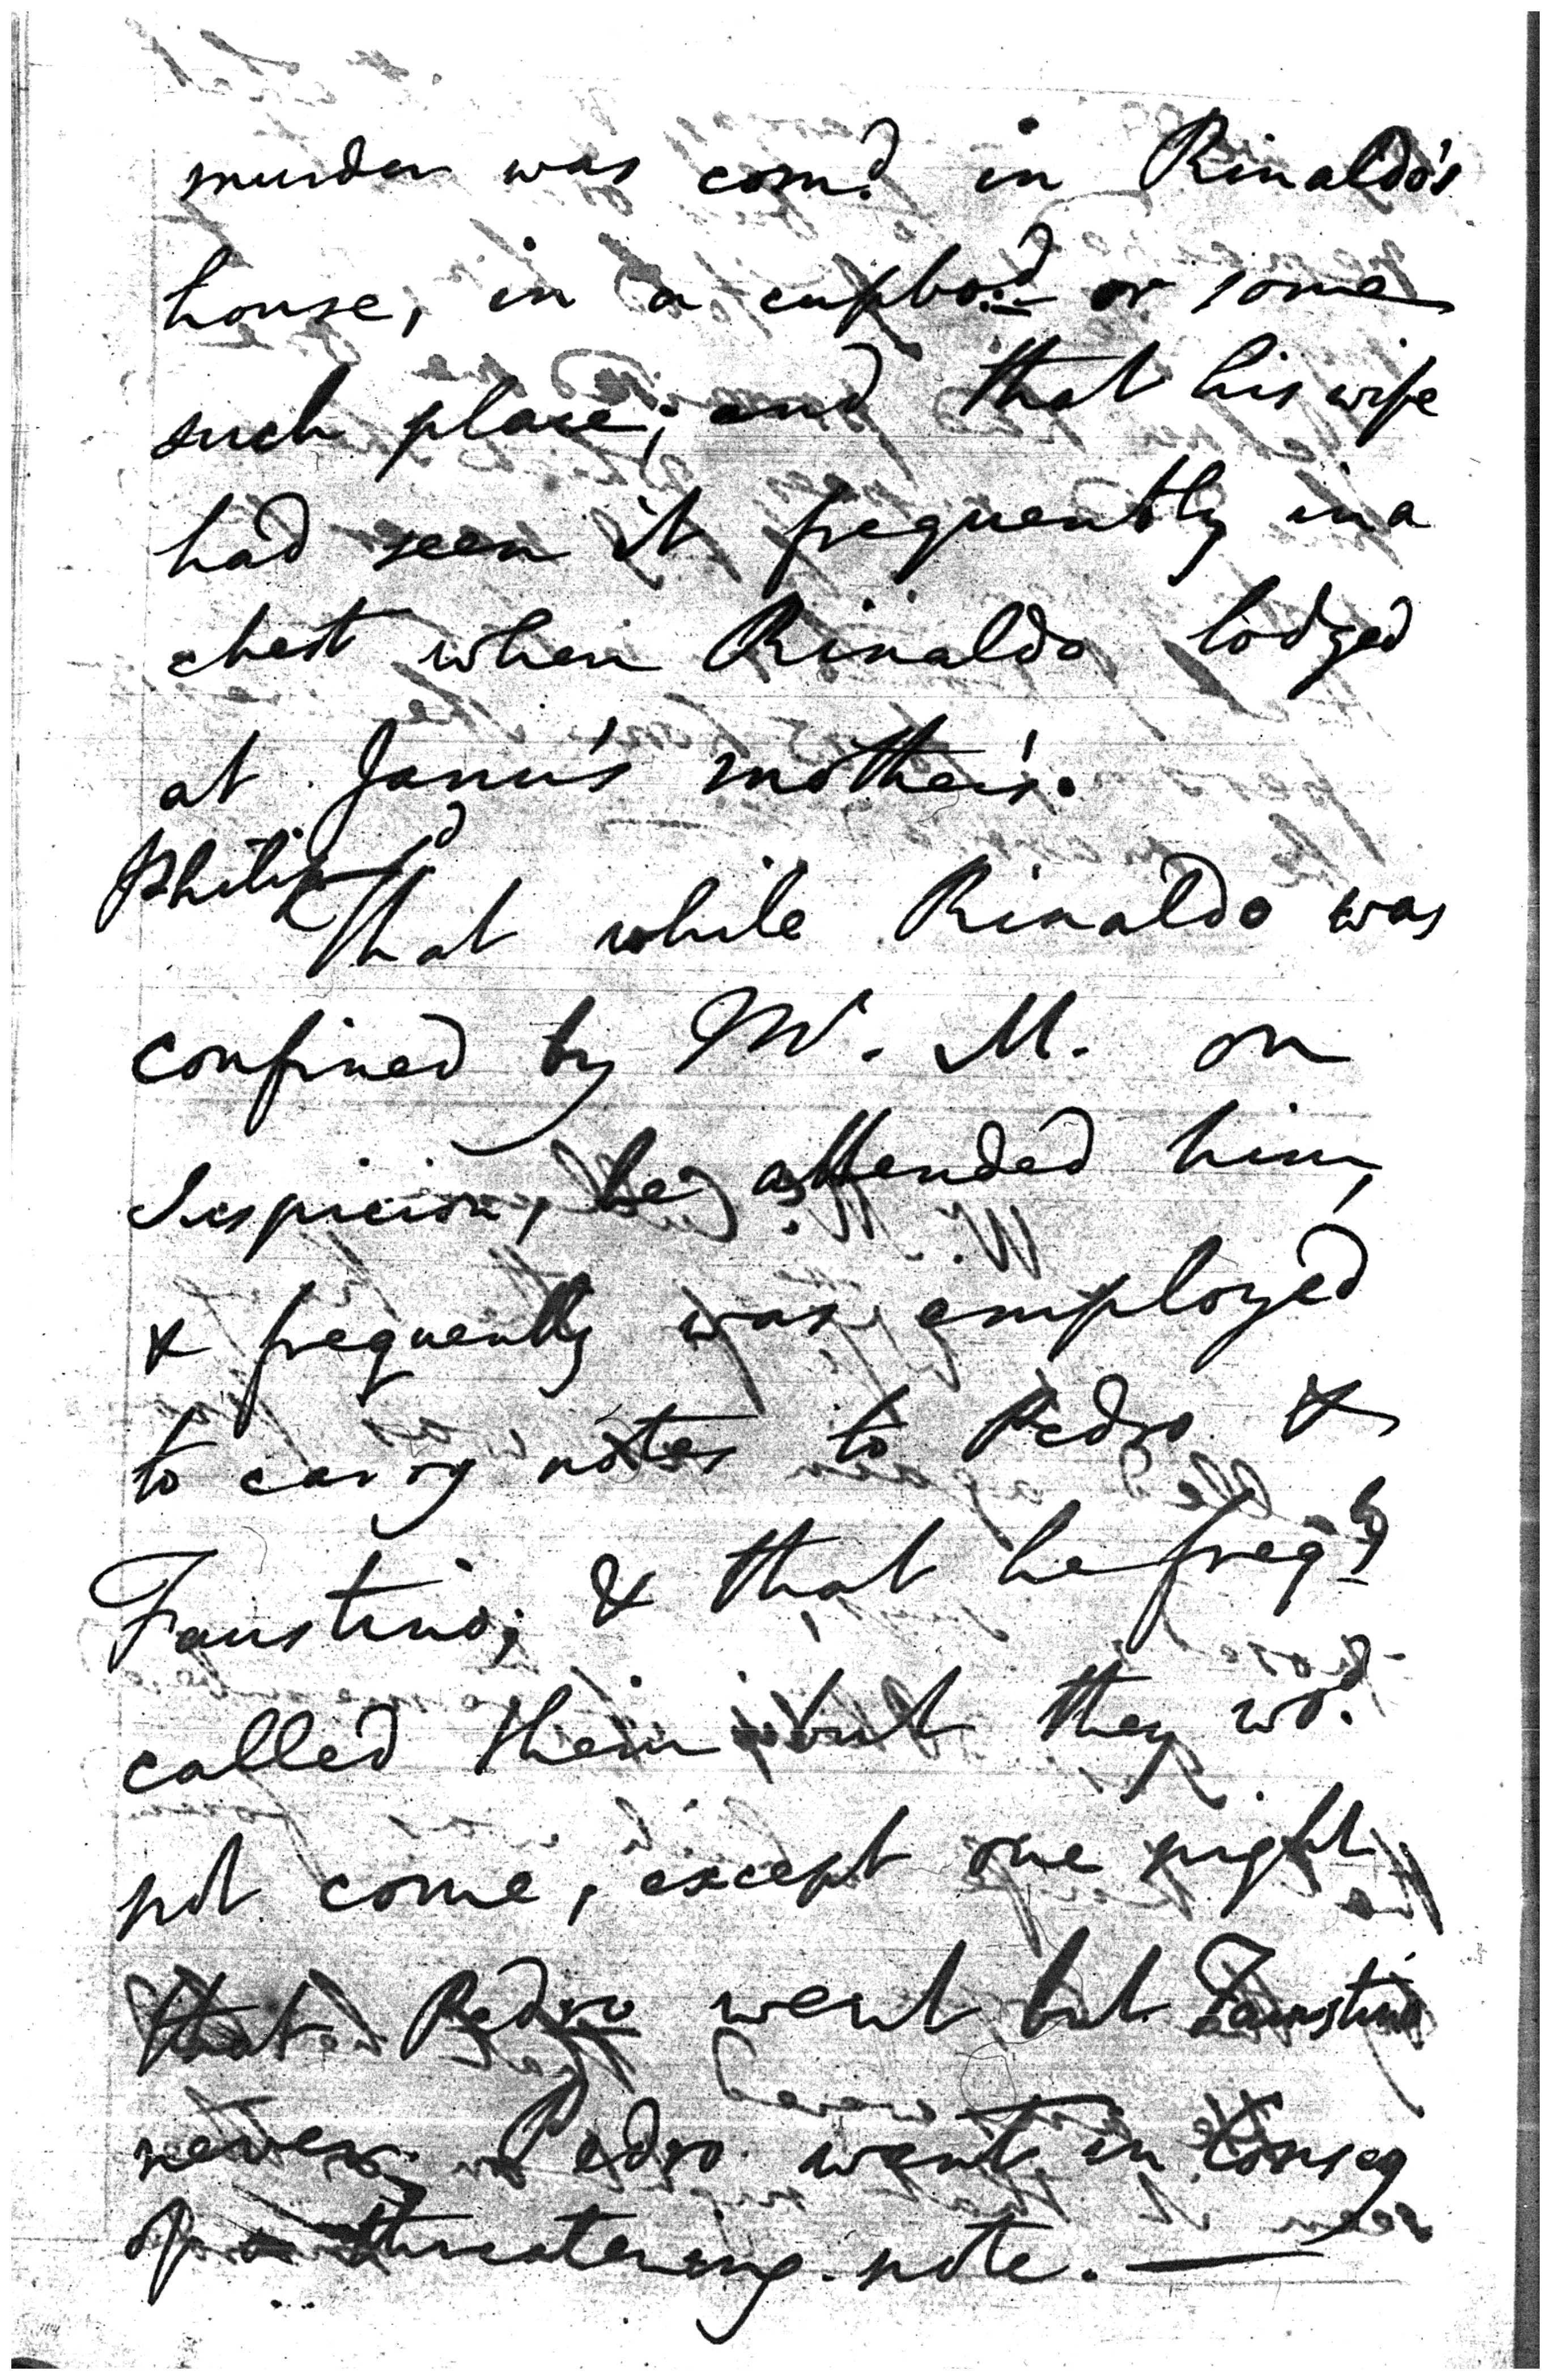 murder was com.d in Rinaldo's
house, in a cupbo.d or some
such place; and that his wife
had seen it frequently in a
chest when Rinaldo lodged
at Janu's mother's.
Philip
That while Rinaldo was
confined by Mr. M. on
suspicion, he attended him,
& frequently was employed
to carry notes to Pedro &
Faustino; & that he freq.ly
called them but they wo.d
not come, except one night
that Pedro went but Faustino
never. Pedro went in conseq
of a threatening note. —